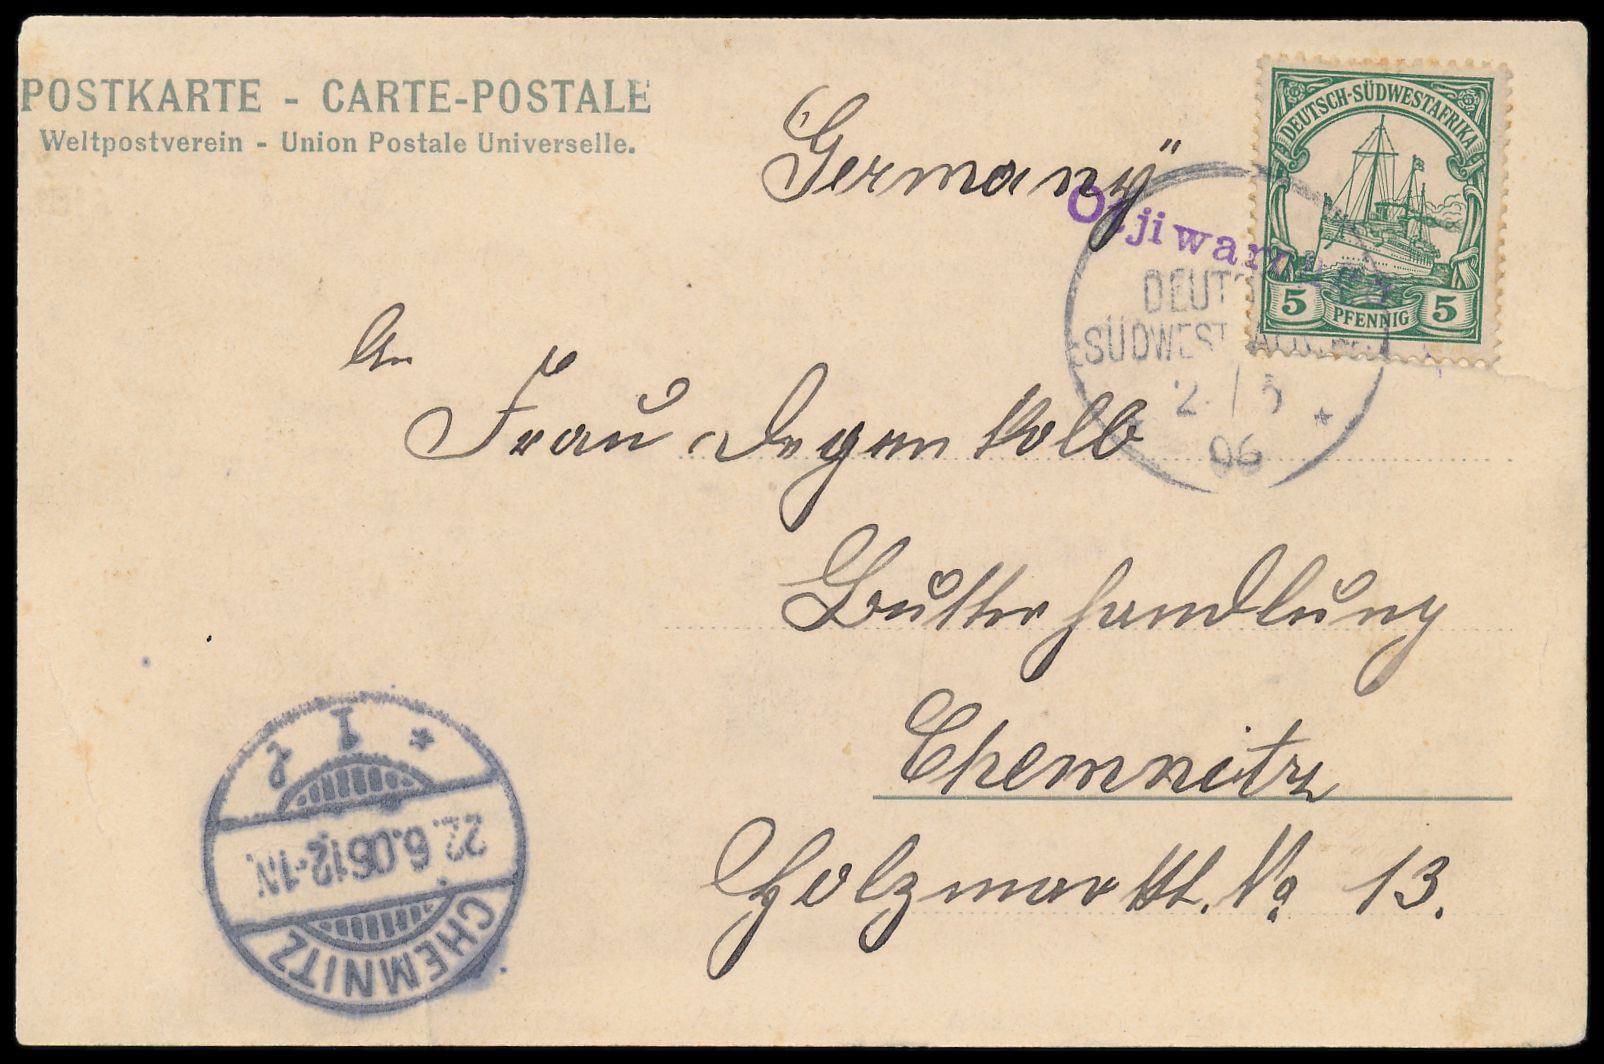 POSTKARTE - CARTE-POSTALE
Weltpostverein - Union Postale Universelle.
Germany
DEUTSCH-SÜDWESTAFRIKA
5 PFENNIG 5
DEUTSCH
SÜDWEST
06
An
Frau Degenkolb
Butterhandlung
Chemnitz
Holzmarkt. No 13.
1
22.6.06 12-1N.
CHEMNITZ